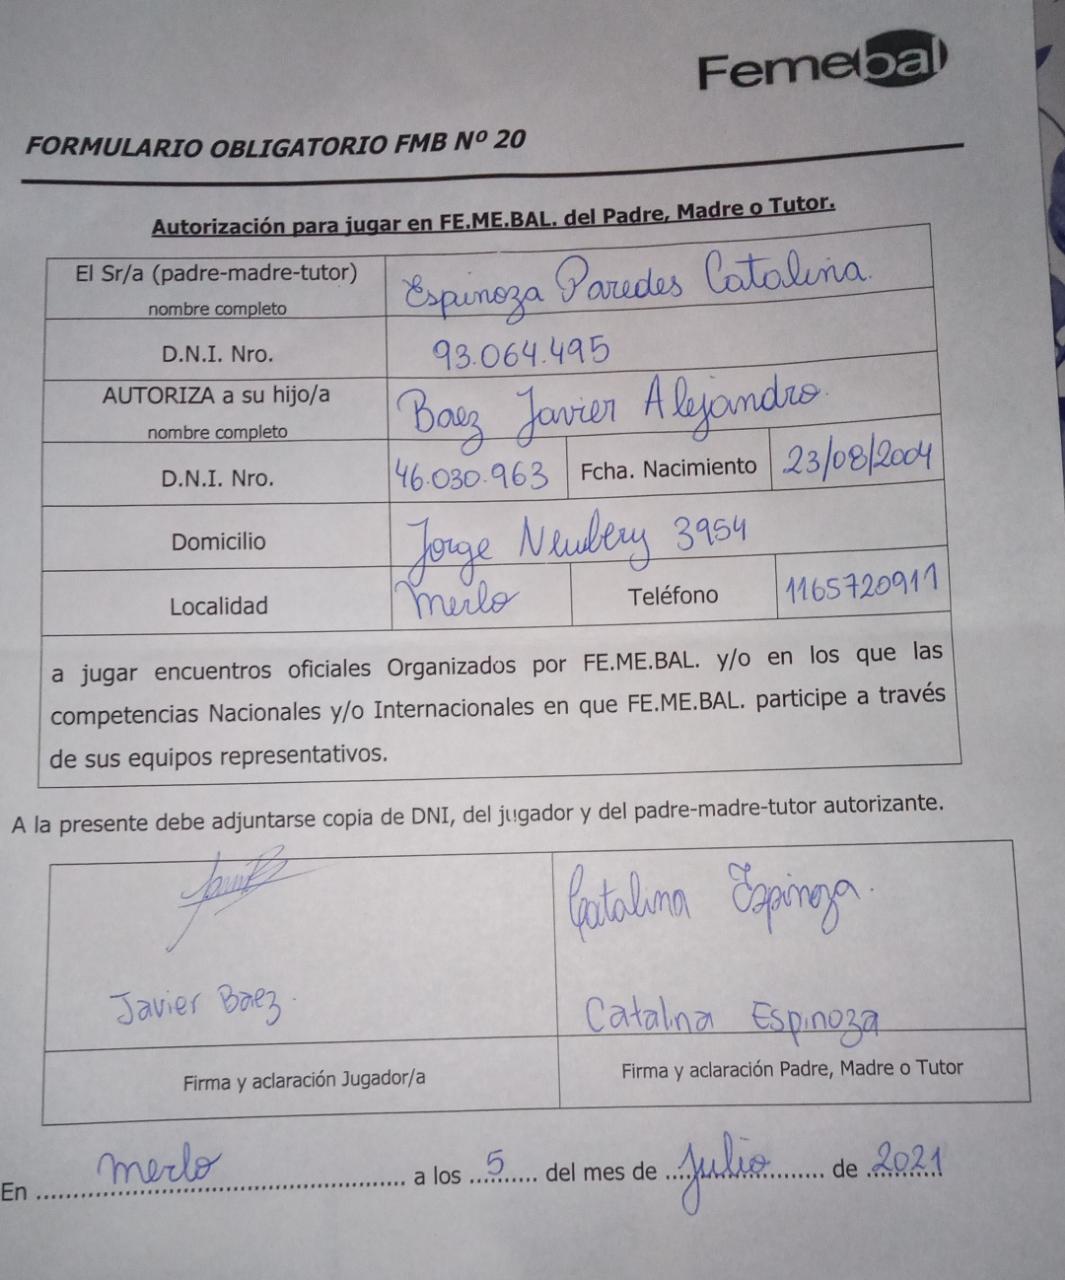 Femebal
FORMULARIO OBLIGATORIO FMB Nº 20
Autorización para jugar en FE.ME.BAL. del Padre, Madre o Tutor.
El Sr/a (padre-madre-tutor)
nombre completo
Espinoza Paredes Catalina.
D.N.I. Nro.
93.064.495
AUTORIZA a su hijo/a
nombre completo
Baez Javier Alejandro.
D.N.I. Nro.
46.030.963
Fcha. Nacimiento
23/08/2004
Domicilio
Jorge Newbery 3954
Localidad
Merlo
Teléfono
1165720911
a jugar encuentros oficiales Organizados por FE.ME.BAL. y/o en los que las
competencias Nacionales y/o Internacionales en que FE.ME.BAL. participe a través
de sus equipos representativos.
A la presente debe adjuntarse copia de DNI, del jugador y del padre-madre-tutor autorizante.
Javier Baez.
Firma y aclaración Jugador/a
Catalina Espinoza.
Catalina Espinoza
Firma y aclaración Padre, Madre o Tutor
En Merlo a los 5 del mes de Julio de 2021